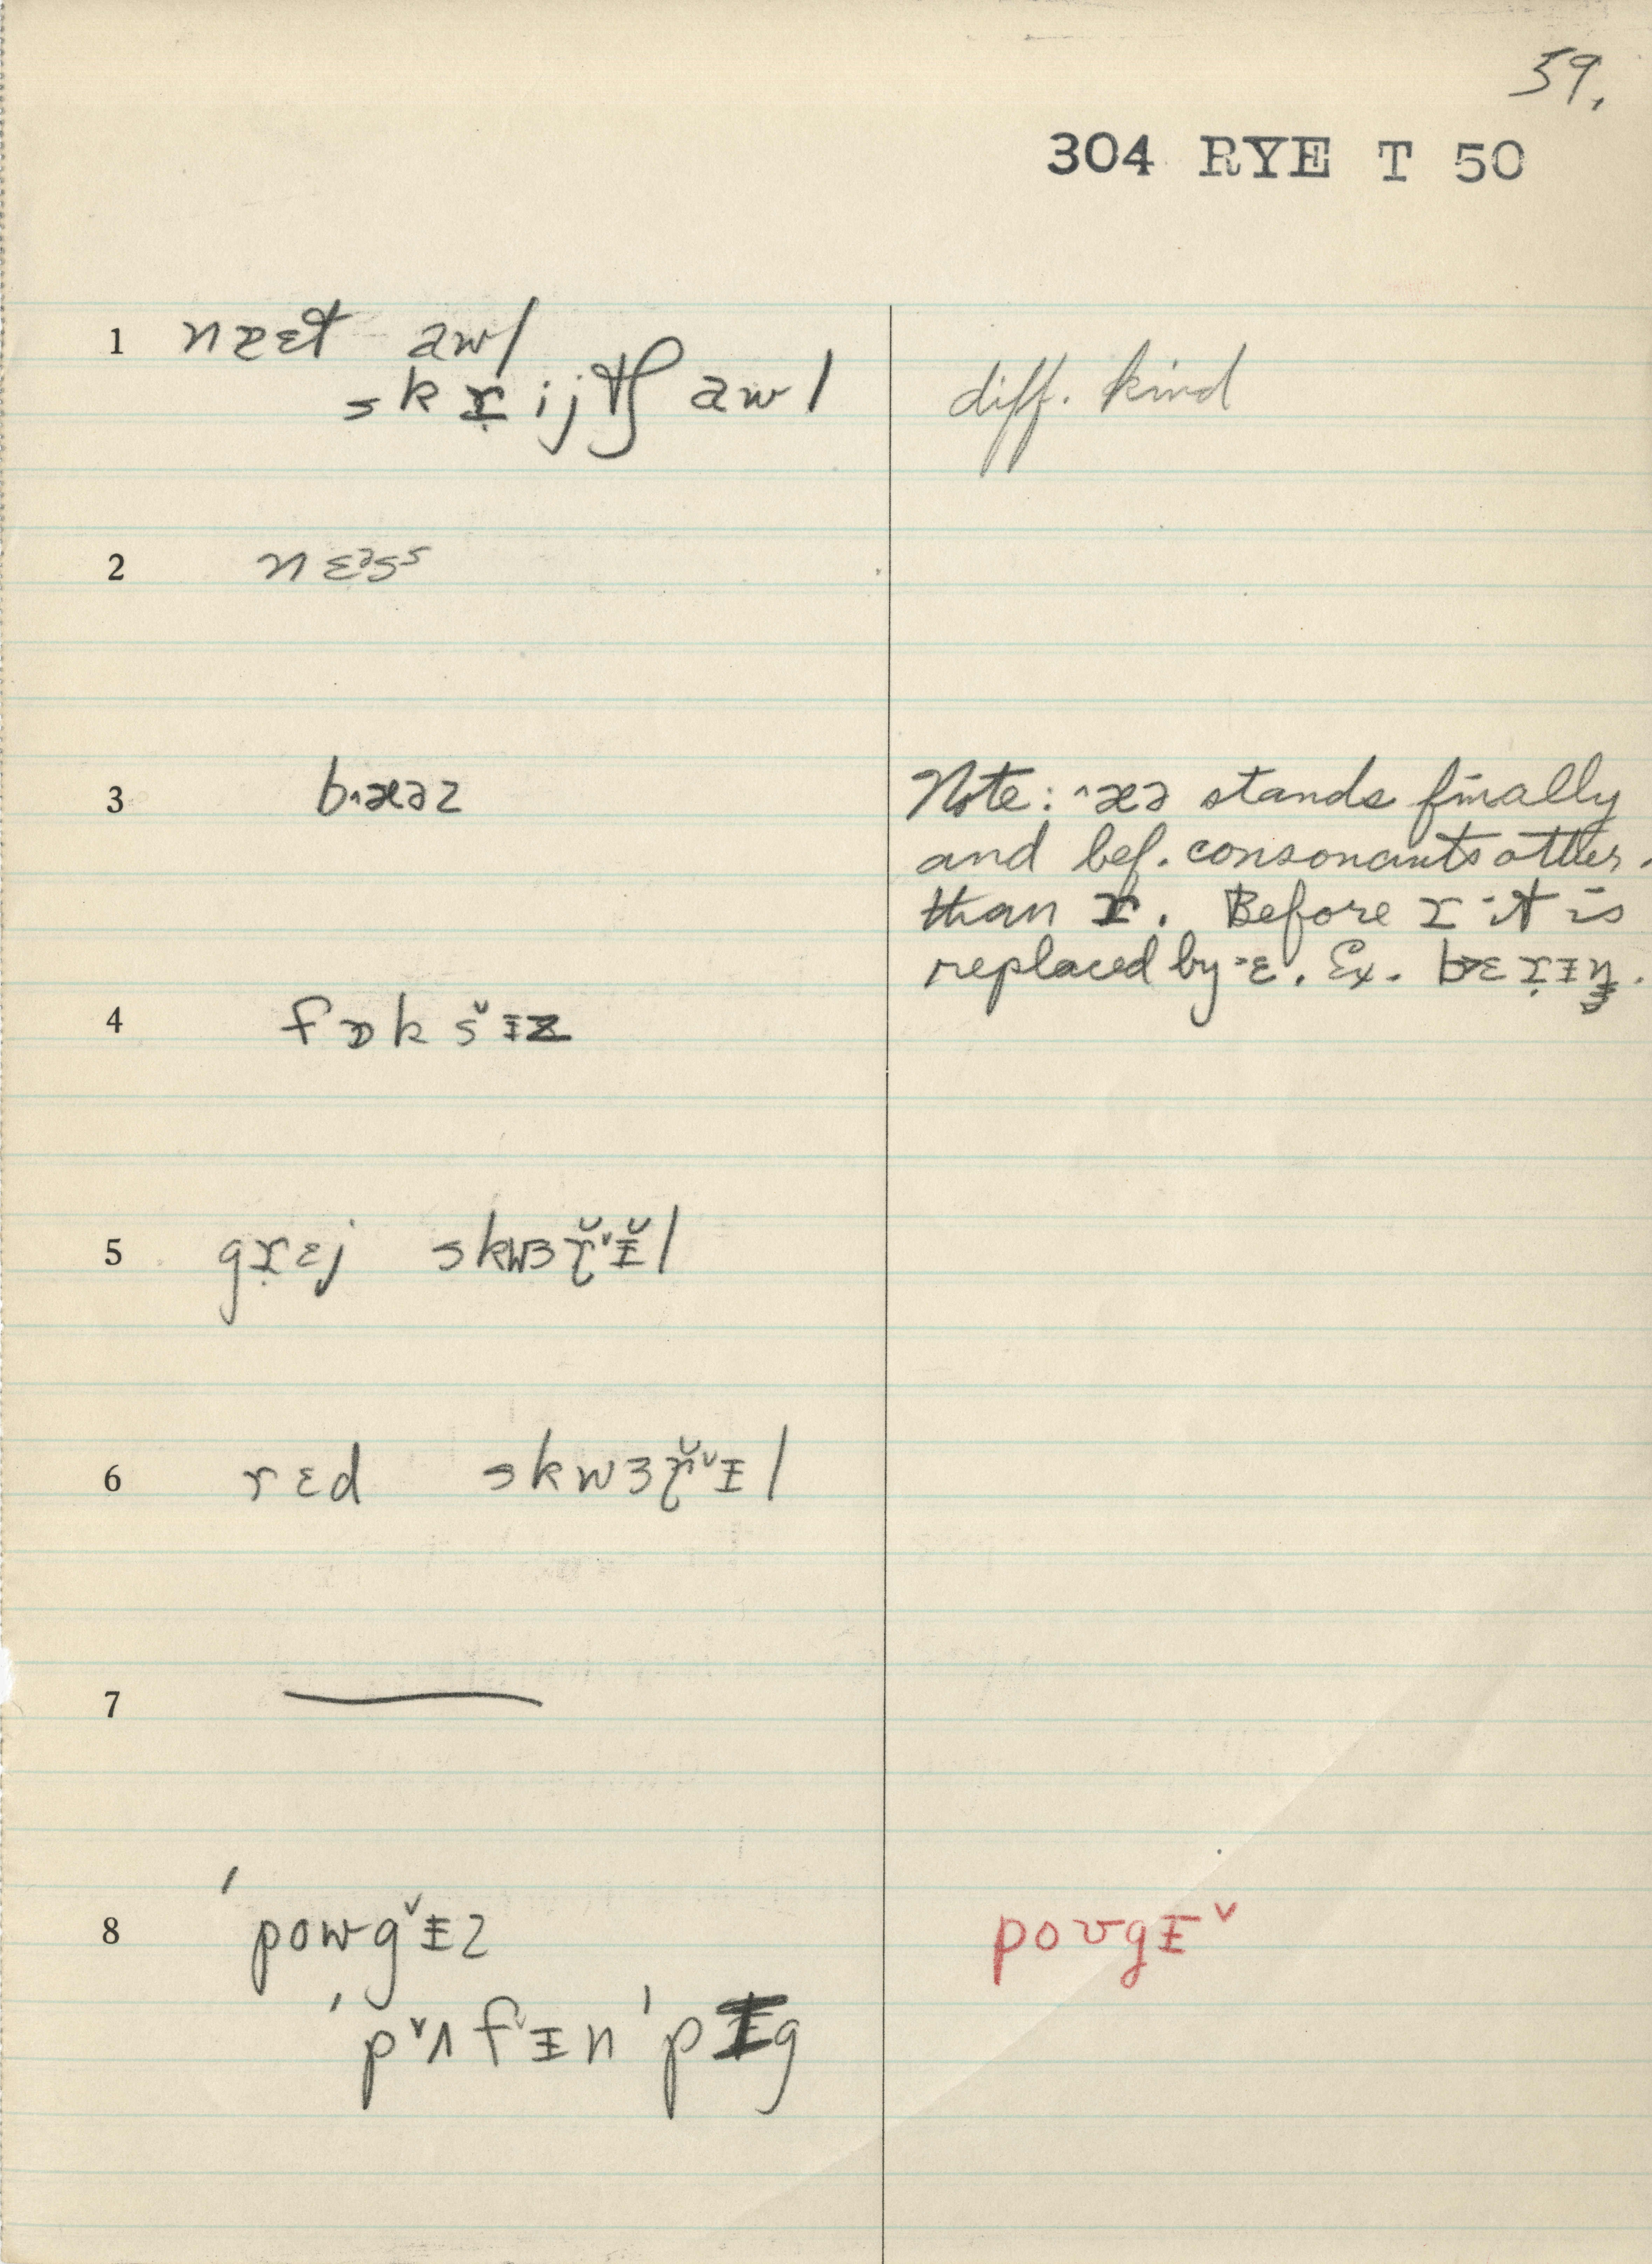 59.
304 RYE T 50
1 nɛɛt awl
skɹ̣ijʧ awl diff. kind
2 nɛᵊsˢ
3 b˄æəz Note: ˄æə stands finally
and bef. consonants other
than ɹ. Before ɹ it is
replaced by ˃ɛ. Ex. b˃ɛɹ̣ɨŋ.
4 fɒks˅ɨz
5 gɹ̣ɛj skwɜɹ̆˅ɨ̆l
6 rɛd skwɜɹ̆˅ɨl
7
8 ˈpowg˅ɨz poʊgɨ˅
ˈp˅ʌf˅ɨn ˈpɪg